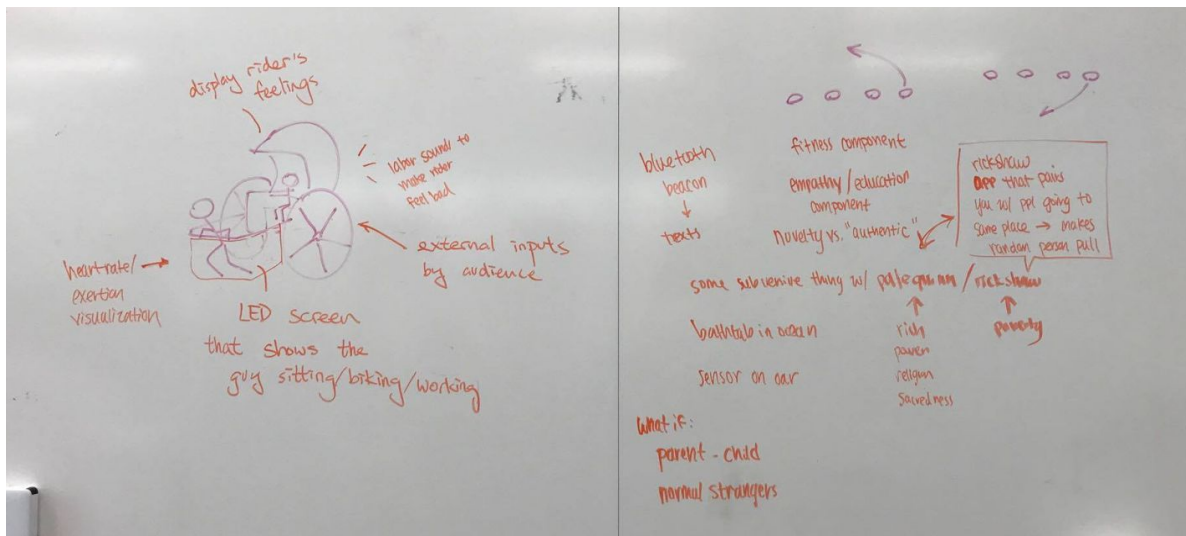 display rider's
feelings
labor sounds to
make rider
feel bad
external inputs
by audience
heart rate/
exertion
visualization
LED screen
that shows the
guy sitting/biking/working
bluetooth
beacon
texts
fitness component
empathy/education
component
novelty vs. "authentic"
rickshaw
app that pairs
you w/ ppl going to
same place → makes
random person pull
some subversive thing w/ palequinn / rickshaw
bathtub in ocean
sensor on oar
rich
power
religion
sacredness
poverty
What if:
parent - child
normal strangers